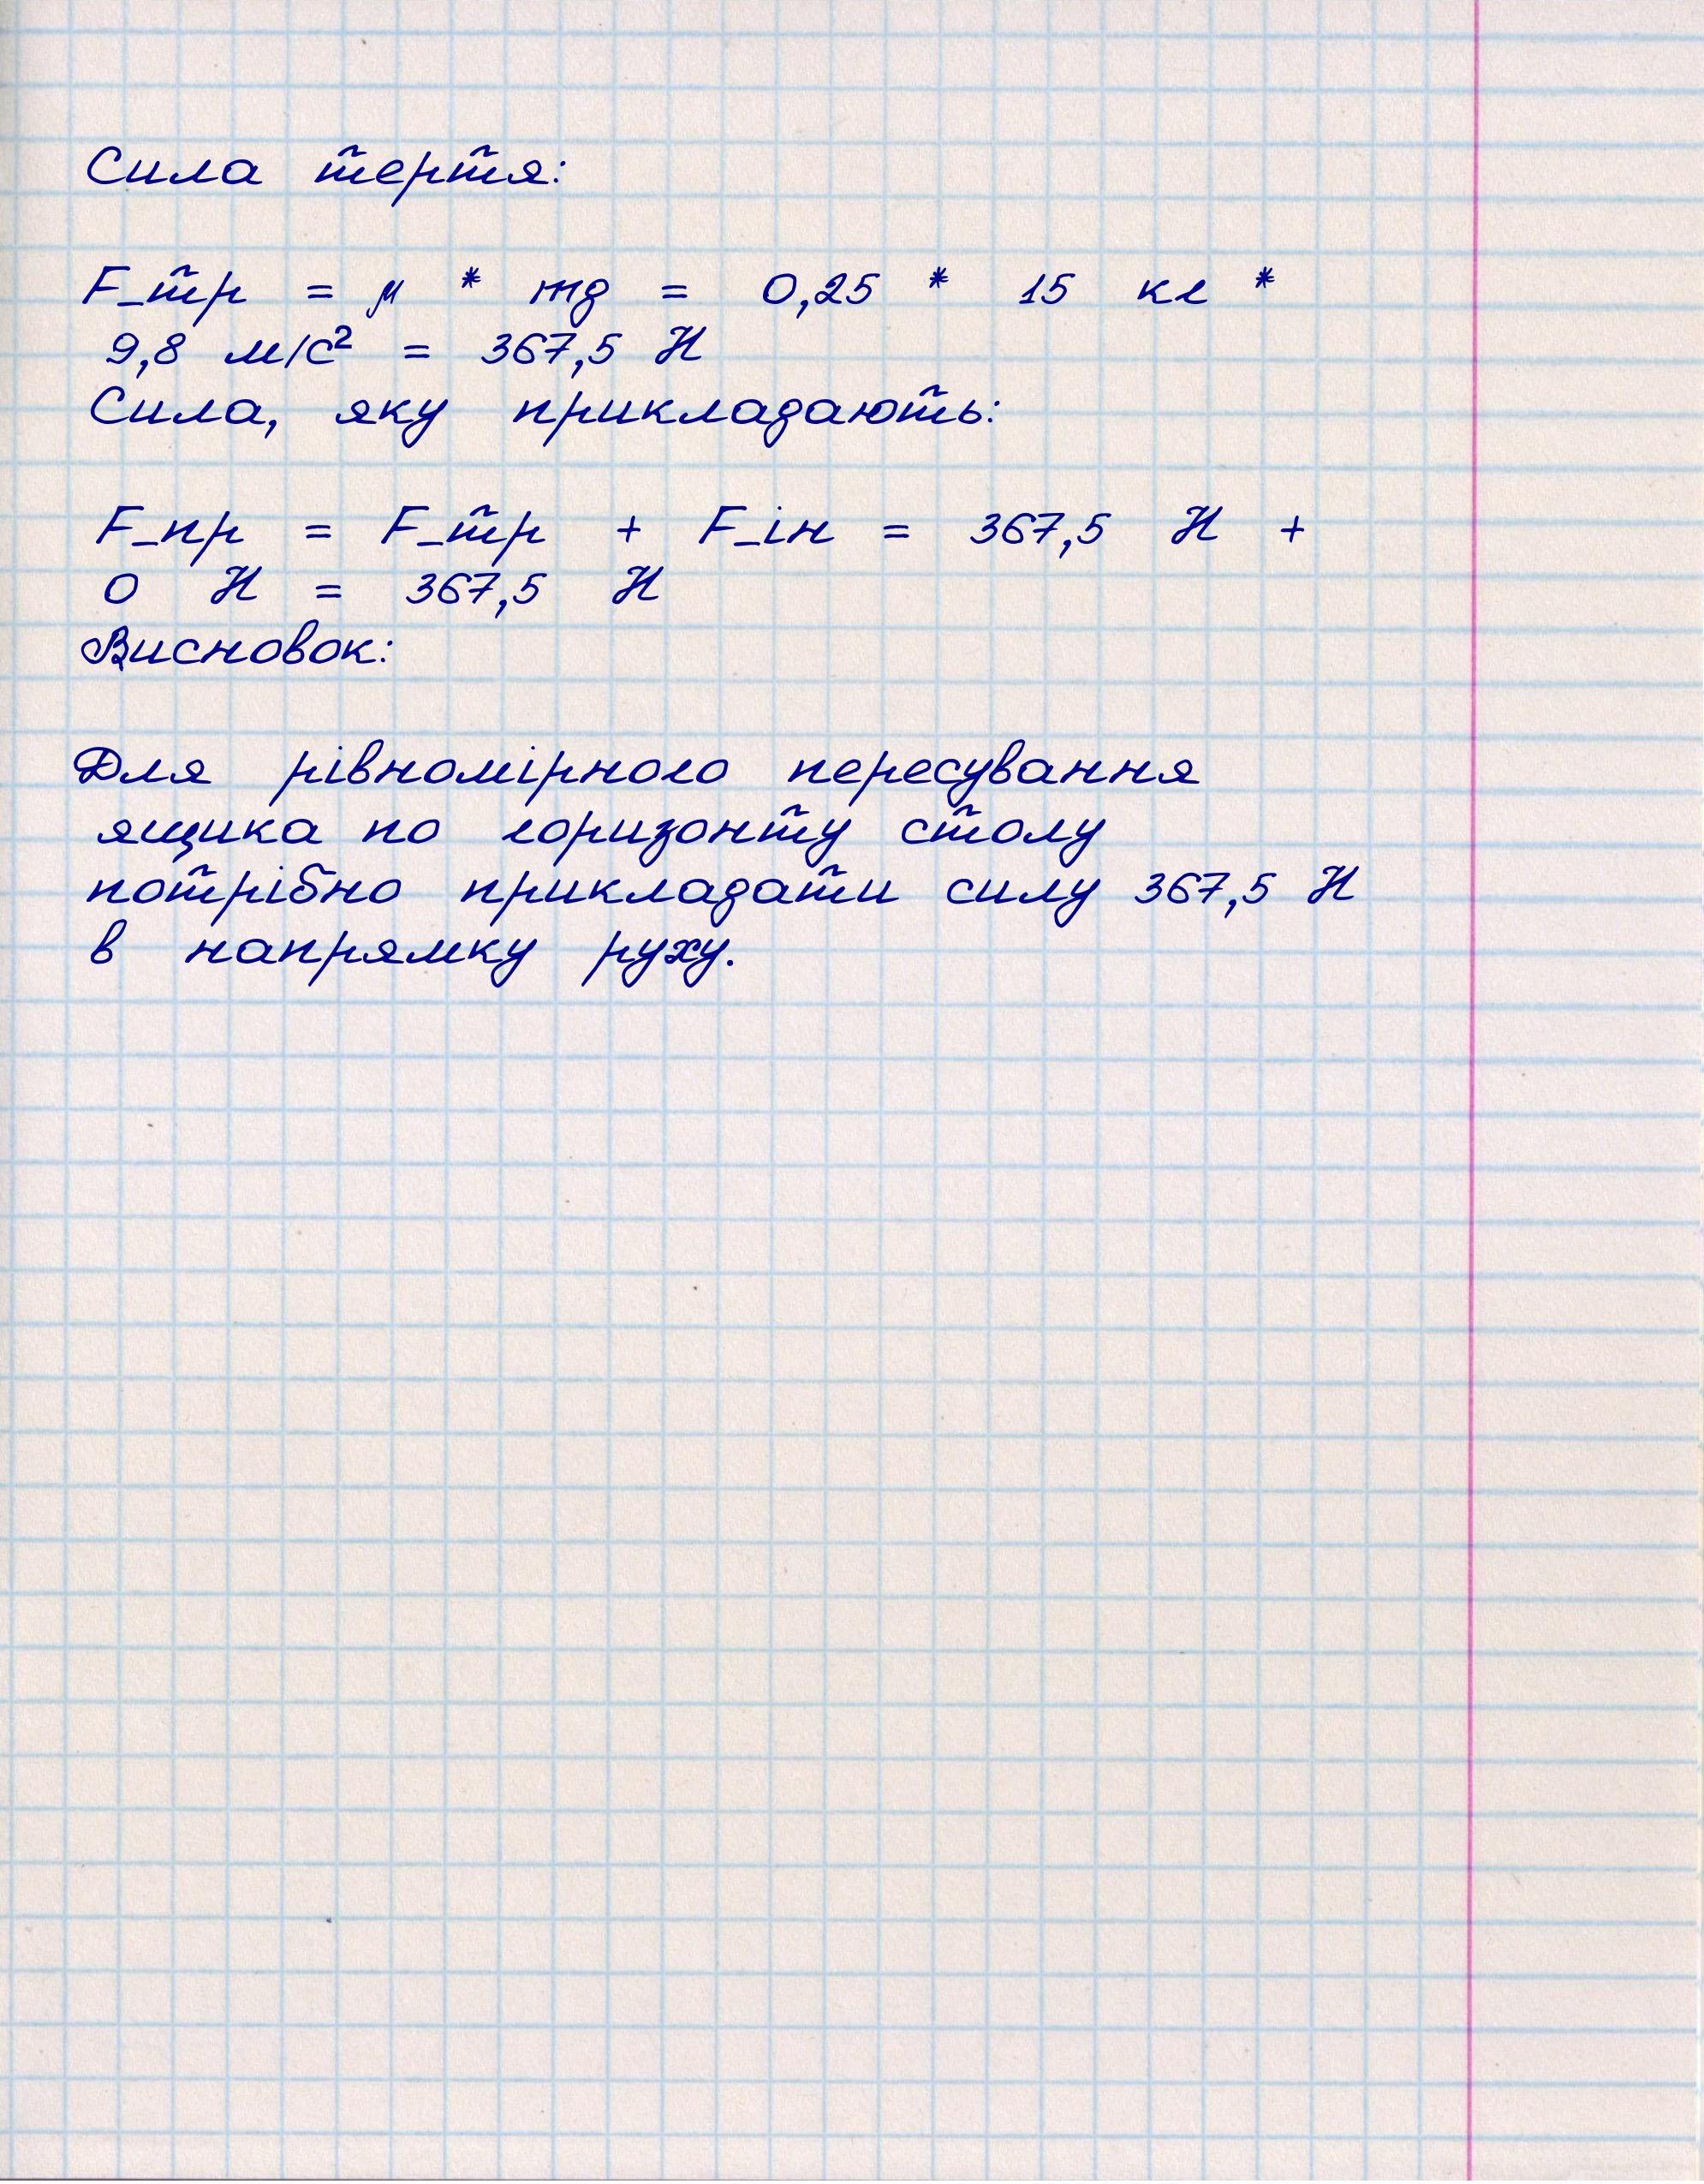 Сила тертя:
F_тр = μ * mg = 0,25 * 15 кг *
9,8 м/с² = 367,5 Н
Сила, яку прикладають:
F_пр = F_тр + F_ін = 367,5 Н +
0 Н = 367,5 Н
Висновок:
Для рівномірного пересування
ящика по горизонту столу
потрібно прикладати силу 367,5 Н
в напрямку руху.